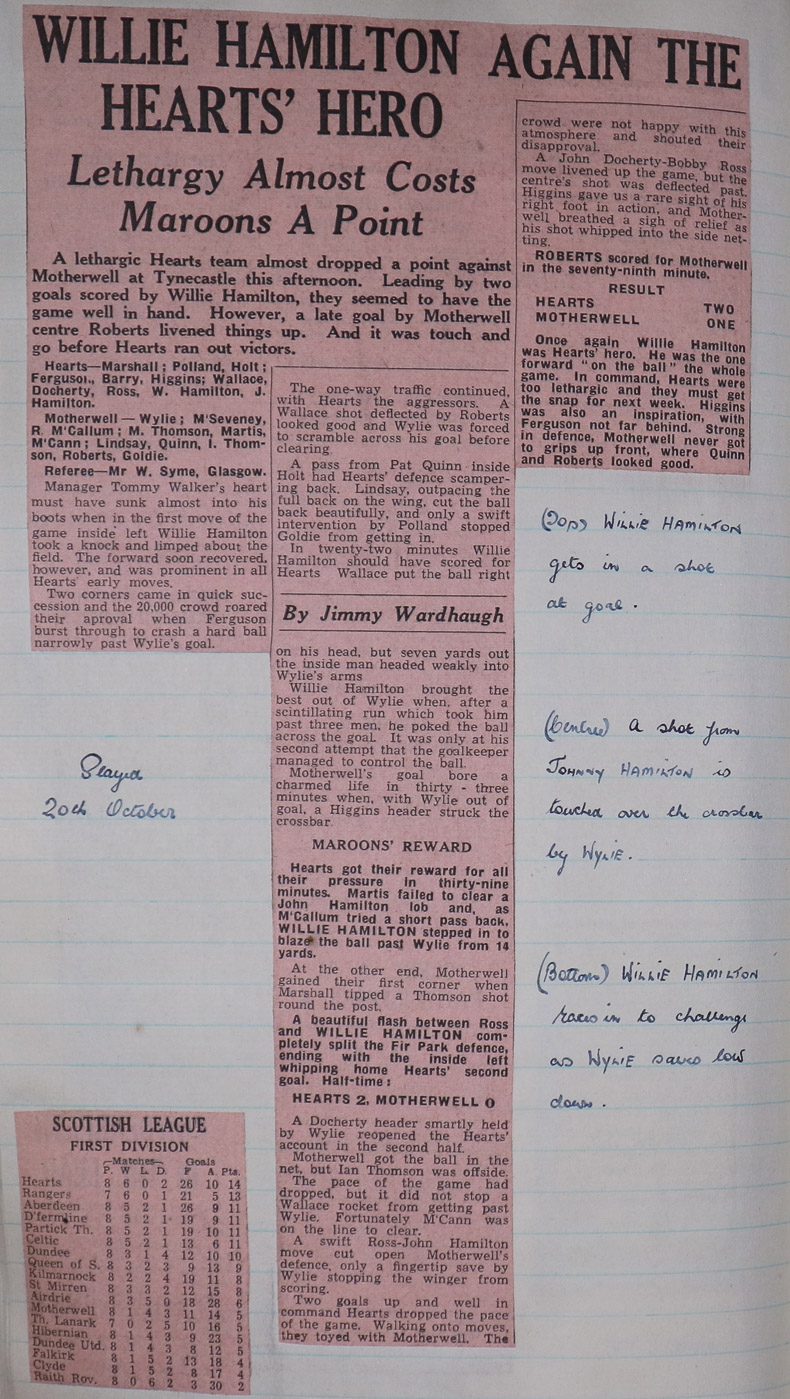 WILLIE HAMILTON AGAIN THE
HEARTS' HERO
Lethargy Almost Costs
Maroons A Point
A lethargic Hearts team almost dropped a point against
Motherwell at Tynecastle this afternoon. Leading by two
goals scored by Willie Hamilton, they seemed to have the
game well in hand. However, a late goal by Motherwell
centre Roberts livened things up. And it was touch and
go before Hearts ran out victors.
Hearts—Marshall; Polland, Holt;
Ferguson, Barry, Higgins; Wallace,
Docherty, Ross, W. Hamilton, J.
Hamilton.
Motherwell — Wylie; M'Seveney,
R. M'Callum; M. Thomson, Martis,
M'Cann; Lindsay, Quinn, I. Thom-
son, Roberts, Goldie.
Referee—Mr W. Syme, Glasgow.
Manager Tommy Walker's heart
must have sunk almost into his
boots when in the first move of the
game inside left Willie Hamilton
took a knock and limped about the
field. The forward soon recovered,
however, and was prominent in all
Hearts' early moves.
Two corners came in quick suc-
cession and the 20,000 crowd roared
their aproval when Ferguson
burst through to crash a hard ball
narrowly past Wylie's goal.
The one-way traffic continued,
with Hearts the aggressors. A
Wallace shot deflected by Roberts
looked good and Wylie was forced
to scramble across his goal before
clearing.
A pass from Pat Quinn inside
Holt had Hearts' defence scamper-
ing back. Lindsay, outpacing the
full back on the wing, cut the ball
back beautifully, and only a swift
intervention by Polland stopped
Goldie from getting in.
In twenty-two minutes Willie
Hamilton should have scored for
Hearts Wallace put the ball right
By Jimmy Wardhaugh
on his head, but seven yards out
the inside man headed weakly into
Wylie's arms
Willie Hamilton brought the
best out of Wylie when, after a
scintillating run which took him
past three men, he poked the ball
across the goal. It was only at his
second attempt that the goalkeeper
managed to control the ball.
Motherwell's goal bore a
charmed life in thirty - three
minutes when, with Wylie out of
goal, a Higgins header struck the
crossbar
MAROONS' REWARD
Hearts got their reward for all
their pressure in thirty-nine
minutes. Martis failed to clear a
John Hamilton lob and, as
M'Callum tried a short pass back,
WILLIE HAMILTON stepped in to
blaze the ball past Wylie from 14
yards.
At the other end, Motherwell
gained their first corner when
Marshall tipped a Thomson shot
round the post.
A beautiful flash between Ross
and WILLIE HAMILTON com-
pletely split the Fir Park defence,
ending with the inside left
whipping home Hearts' second
goal. Half-time:
HEARTS 2, MOTHERWELL 0
A Docherty header smartly held
by Wylie reopened the Hearts'
account in the second half.
Motherwell got the ball in the
net, but Ian Thomson was offside.
The pace of the game had
dropped, but it did not stop a
Wallace rocket from getting past
Wylie. Fortunately M'Cann was
on the line to clear.
A swift Ross-John Hamilton
move cut open Motherwell's
defence, only a fingertip save by
Wylie stopping the winger from
scoring.
Two goals up and well in
command Hearts dropped the pace
of the game. Walking onto moves,
they toyed with Motherwell. The
crowd were not happy with this
atmosphere and shouted their
disapproval.
A John Docherty-Bobby Ross
move livened up the game, but the
centre's shot was deflected past.
Higgins gave us a rare sight of his
right foot in action, and Mother-
well breathed a sigh of relief as
his shot whipped into the side net-
ting.
ROBERTS scored for Motherwell
in the seventy-ninth minute.
RESULT
HEARTS TWO
MOTHERWELL ONE
Once again Willie Hamilton
was Hearts' hero. He was the one
forward "on the ball" the whole
game. In command, Hearts were
too lethargic and they must get
the snap for next week. Higgins
was also an inspiration, with
Ferguson not far behind. Strong
in defence, Motherwell never got
to grips up front, where Quinn
and Roberts looked good.
(Top) WILLIE HAMILTON
gets in a shot
at goal.
(Centre) A shot from
JOHNNY HAMILTON is
touched over the crossbar
by WYLIE.
(Bottom) WILLIE HAMILTON
races in to challenge
as WYLIE saves low
down.
Played
20th October
SCOTTISH LEAGUE
FIRST DIVISION
Matches Goals
P. W L. D. F A. Pts.
Hearts 8 6 0 2 26 10 14
Rangers 7 6 0 1 21 5 13
Aberdeen 8 5 2 1 26 9 11
D'fermline 8 5 2 1 19 9 11
Partick Th. 8 5 2 1 19 10 11
Celtic 8 5 2 1 13 6 11
Dundee 8 3 1 4 12 10 10
Queen of S. 8 3 2 3 9 13 9
Kilmarnock 8 2 2 4 19 11 8
St Mirren 8 3 3 2 12 15 8
Airdrie 8 3 5 0 18 28 6
Motherwell 8 1 4 3 11 14 5
Th. Lanark 7 0 2 5 10 16 5
Hibernian 8 1 4 3 9 23 5
Dundee Utd. 8 1 4 3 8 12 5
Falkirk 8 1 5 2 13 18 4
Clyde 8 1 5 2 8 17 4
Raith Rov. 8 0 6 2 3 30 2